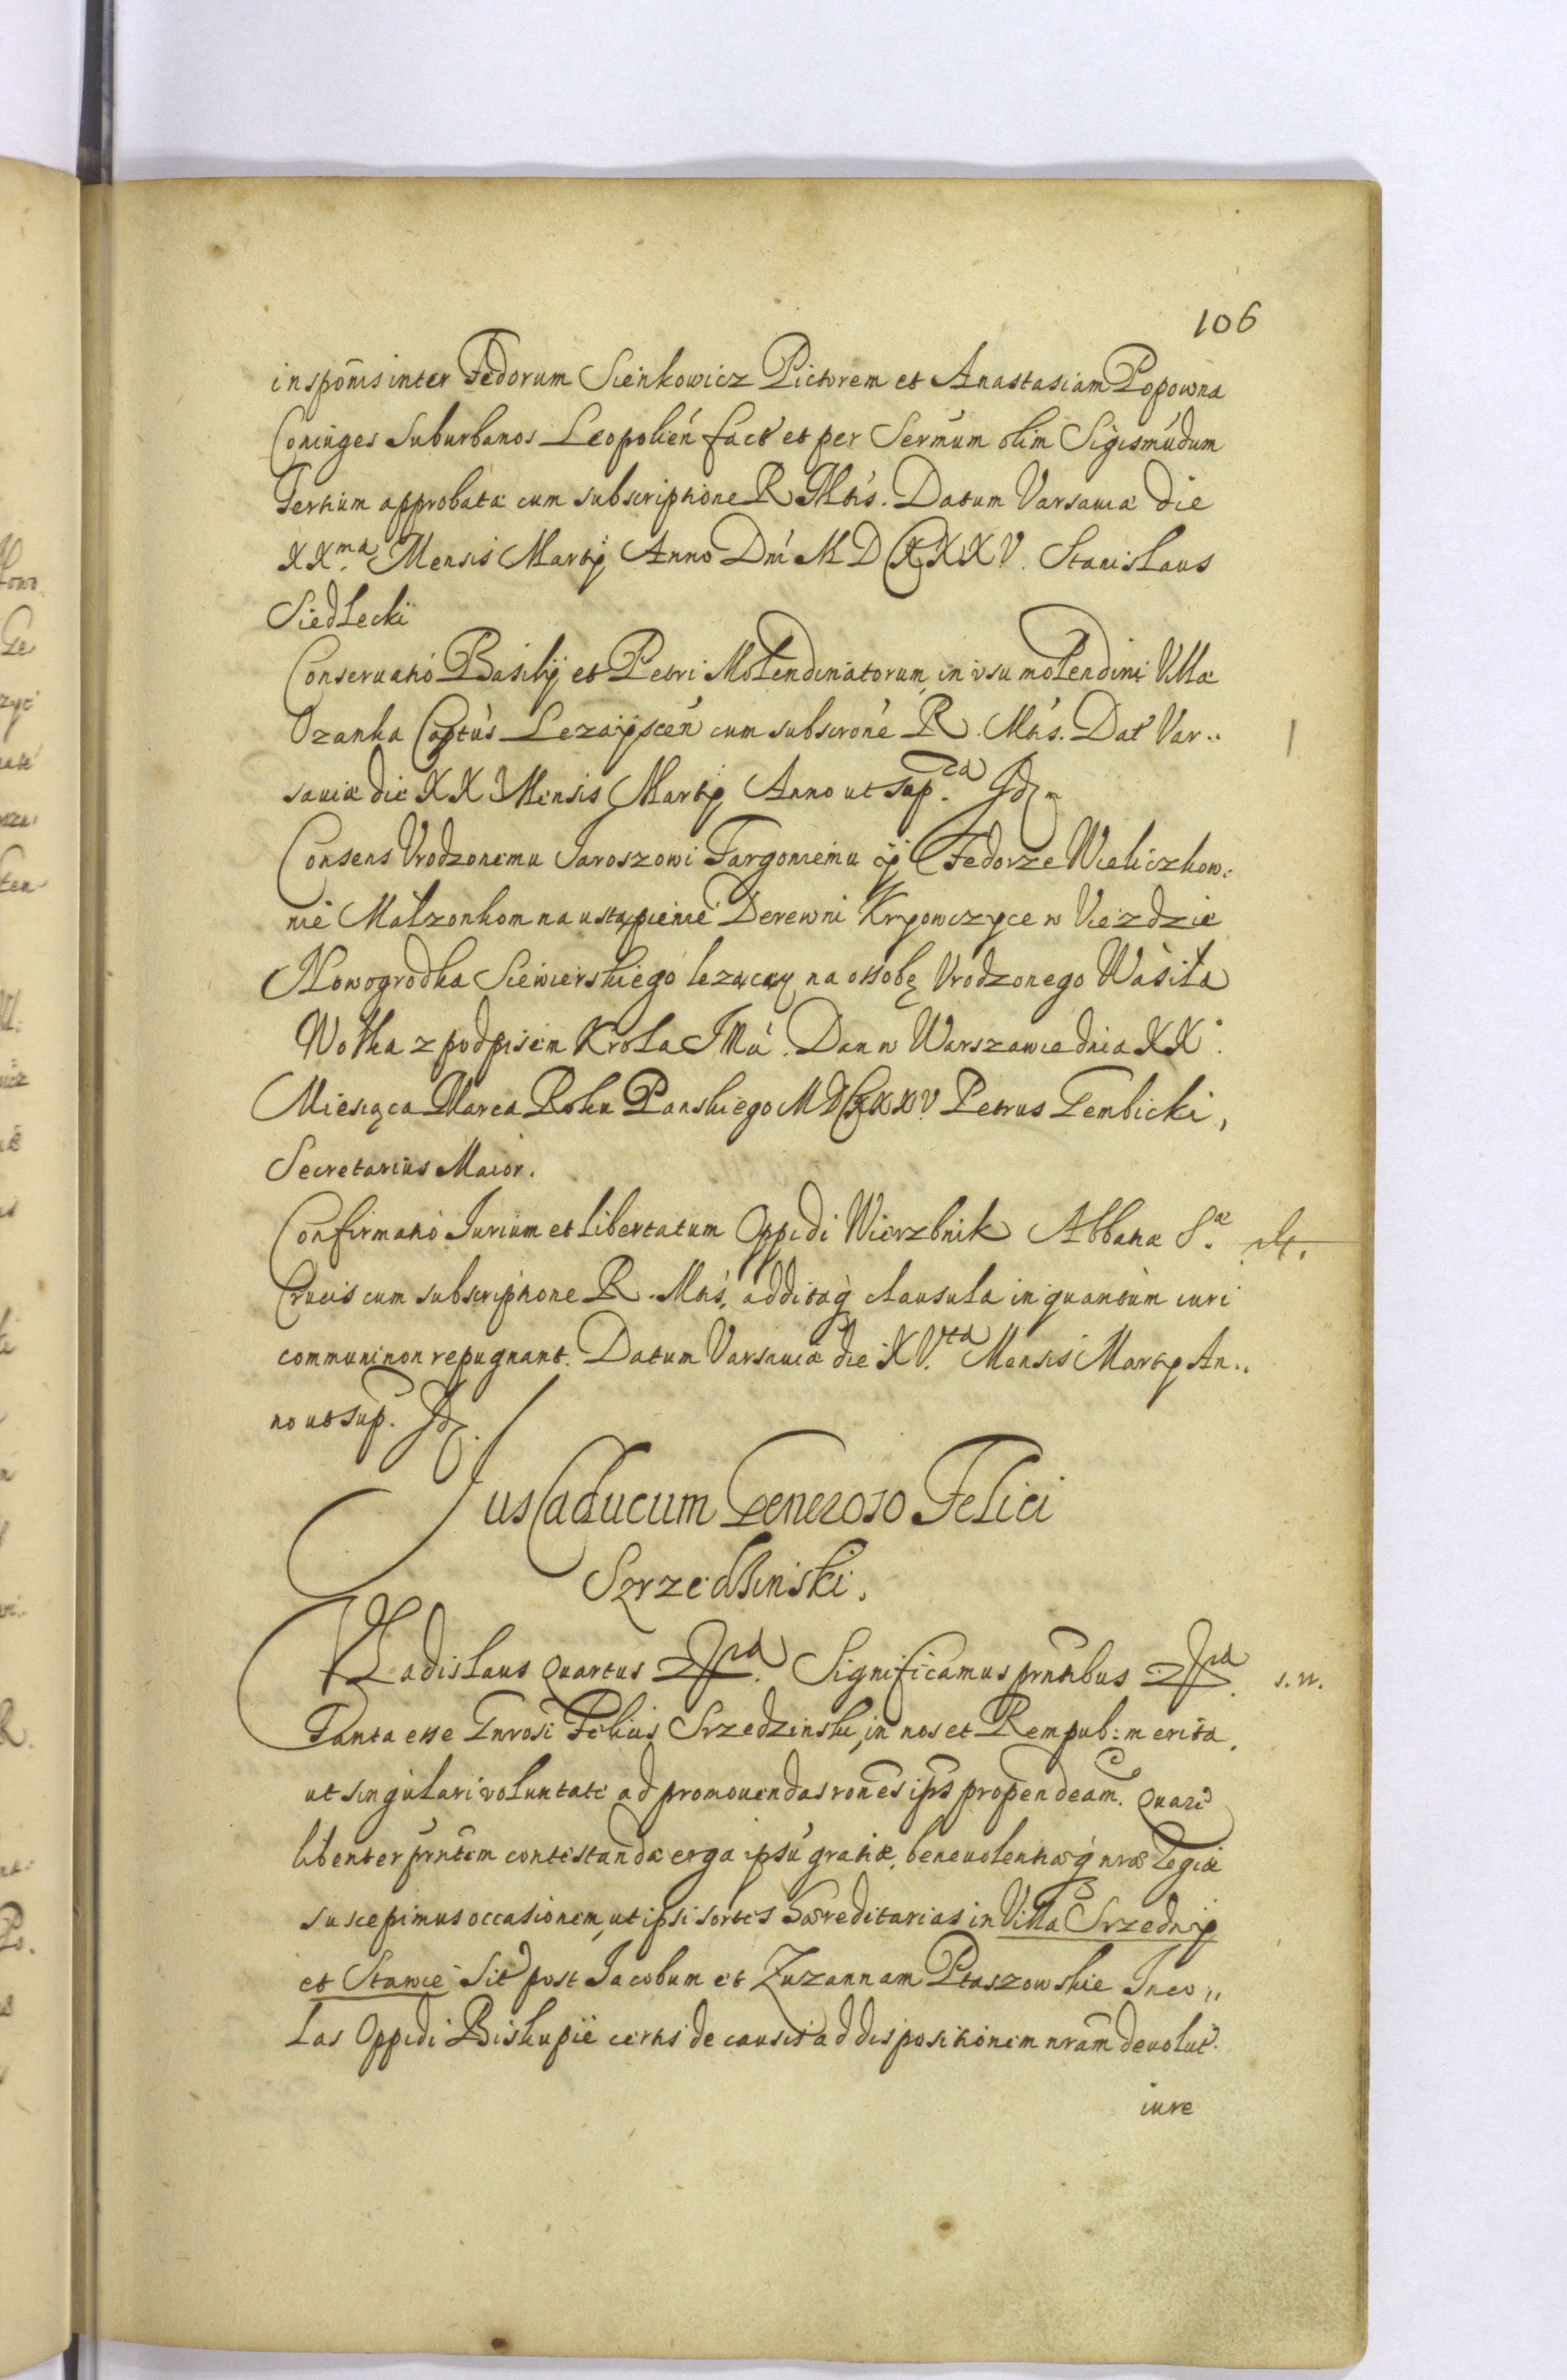 106
insponis inter Fedorum Sienkowicz Pictorem et Anastasiam Popowna
Coniuges Suburbanos Leopolien fact et per Sermum olim Sigismudum
Tertium approbata cum subscriptione R. Mtis. Datum Varsauia die
XXma. Mensis Martij Anno Dni MDCXXXV. Stanislaus
Siedlecki
Conseruatio Basilij et Petri Molendinatorum in vsu molendini Villa
Ozanka Captus Lezayscen cum subscrone R. Mtis. Dat Var..
sauia die XX Mensis Martij Anno ut sup.ra Id
Consens Vrodzonemu Jaroszowi Fargoniemu y Fedorze Wieliczkow:
nie Małzonkom na ustąpienie Derewni Krypowczyce w Viezdzie
Nowogrodka Siewierskiego lezącey na ossobę Vrodzonego Wasila
Wolka z podpisem Krola JMci. Dan w Warszawie dnia XX.
Miesiąca Marca Roku Panskiego MDCXXXV Petrus Gembicki,
Secretarius Maior.
Confirmatio Jurium et libertatum Oppidi Wierzbnik Abbatia S.æ
Crucis cum subscriptione R. Mtis, additaq clausula in quantum iuri
communi non repugnant. Datum Varsauia die XV.ta Mensis Martij An..
no ut sup. Id.
Jus Caducum Generoso Felici
Srzedzinski.
Vladislaus Quartus Significamus prntibus s.n.
Tanta esse Gnrosi Felicis Srzedzinski, in nos et Rempub: merita,
ut singulari voluntate ad promouendas rones ipis propendeam. Quare
libenter prntem contestanda erga ipsu gratiæ, beneuolentiæq nræ Regiæ
suscepimus occasionem, ut ipsi sortes hæreditarias in Villa Srzedniy
et Stawie Sit post Jacobum et Zuzannam Ptaszowskie Inco,,
las Oppidi Biskupie certis de causis ad dispositionem nram deuolut
iure